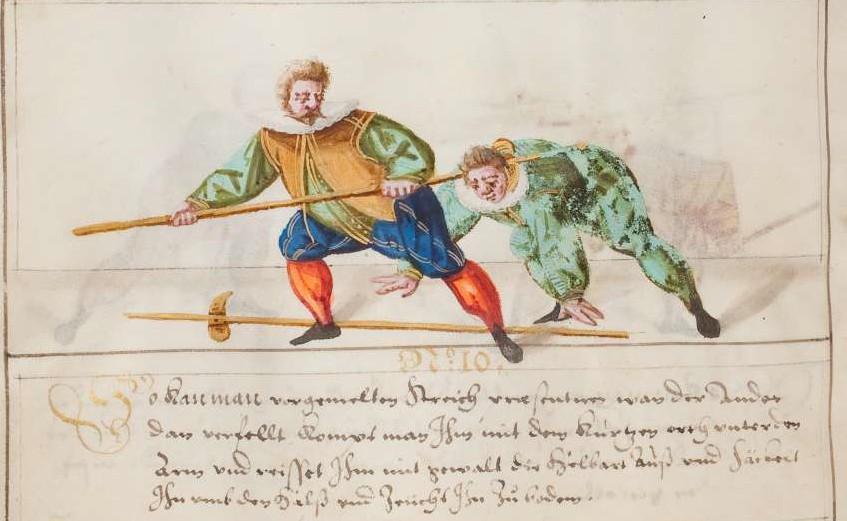 So kan man vorgemelten streich præsentiren wan der Ander
dan verfellt kompt man Ihm mit dem kurtzen orth unter den
Arm und reisset Ihm mit gewalt die Helbart Auß und
Ihn umb den Halß und Zeucht Ihn Zu boden.